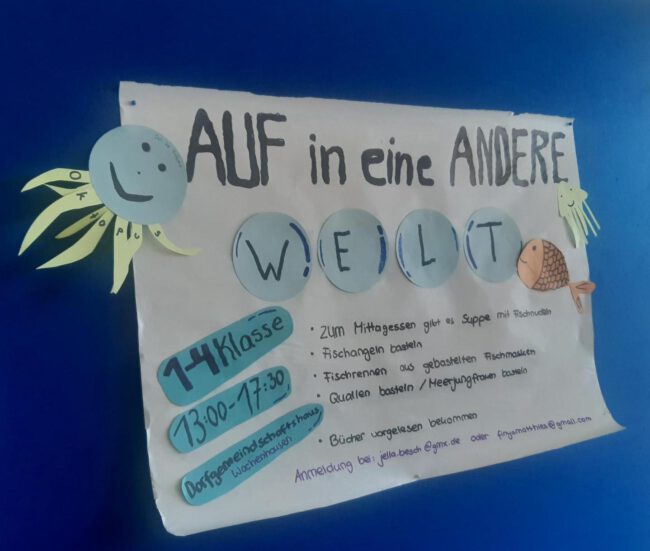 AUF in eine ANDERE
WELT
Oktopus
1-4 Klasse
13:00-17:30
Dorfgemeindschaftshaus
Wachenhausen
• Zum Mittagessen gibt es Suppe mit Fischnudeln
• Fischangeln basteln
• Fischrennen aus gebastelten Fischmasken
• Quallen basteln / Meerjungfrauen basteln
• Bücher vorgelesen bekommen
Anmeldung bei: jella.besch@gmx.de oder